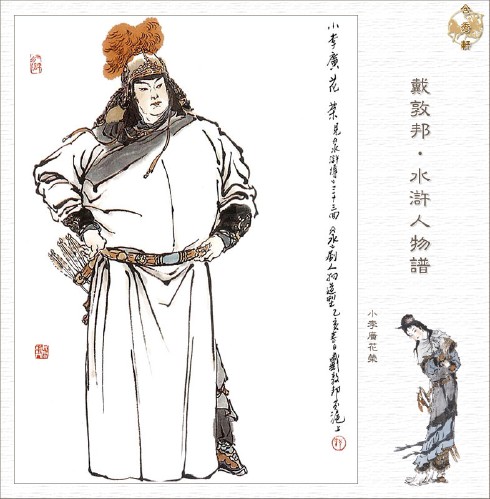 小李廣花榮 見《水滸傳》三十三回 《水》劇人物造型 乙亥春日 戴敦邦
戴敦邦·水滸人物譜
小李廣花榮